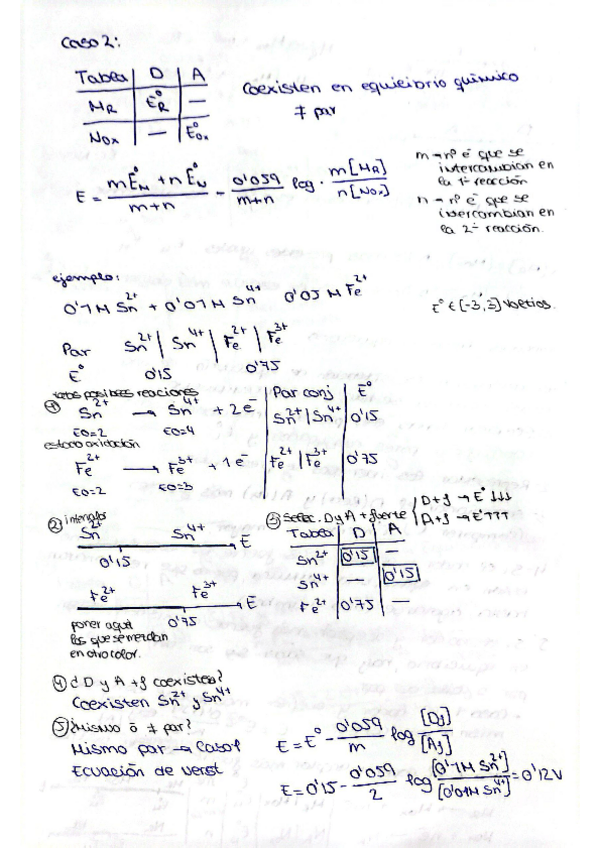 Caso 2:
Tabla | D | A
M_R | E°_R | —
N_Ox | — | E°_Ox
Coexisten en equilibrio químico
≠ par
E = (mE°_M + nE°_N)/(m+n) - 0'059/(m+n) log · m[M_R]/n[N_Ox]
m→nº e⁻ que se
intercambian en
la 1ª reacción
n→nº e⁻ que se
intercambian en
la 2ª reacción.
ejemplo:
0'1M Sn²⁺ + 0'01M Sn⁴⁺ 0'05M Fe²⁺
E° ∈ [-3,3] voltios.
Par Sn²⁺ | Sn⁴⁺ | Fe²⁺ | Fe³⁺
E° 0'15 0'75
posibles reacciones
① Sn²⁺ → Sn⁴⁺ + 2e⁻
EO=2 EO=4
estado oxidación
Fe²⁺ → Fe³⁺ + 1e⁻
EO=2 EO=3
Par conj | E°
Sn²⁺|Sn⁴⁺ | 0'15
Fe²⁺|Fe³⁺ | 0'75
② intervalos
Sn²⁺ Sn⁴⁺ E
0'15
Fe²⁺ Fe³⁺ E
0'75
poner aquí
los que se mezclan
en otro color.
③ Selec. D y A + fuerte { D+f → E°↓↓↓
A+f → E°↑↑↑
Tabla | D | A
Sn²⁺ | 0'15 | —
Sn⁴⁺ | — | 0'15
Fe²⁺ | 0'75 | —
④ ¿D y A +f coexisten?
Coexisten Sn²⁺ y Sn⁴⁺
⑤ ¿Mismo ó ≠ par?
Mismo par → Caso 1
Ecuación de Nerst
E = E° - 0'059/m log [D_f]/[A_f]
E = 0'15 - 0'059/2 log [0'1M Sn²⁺]/[0'01M Sn⁴⁺] = 0'12V